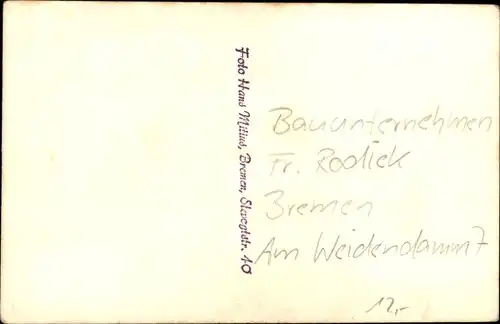 Foto Hans Mitius, Bremen, Slevogtstr. 40
Bauunternehmen
Fr. Rodiek
Bremen
Am Weidendamm 7
12,-